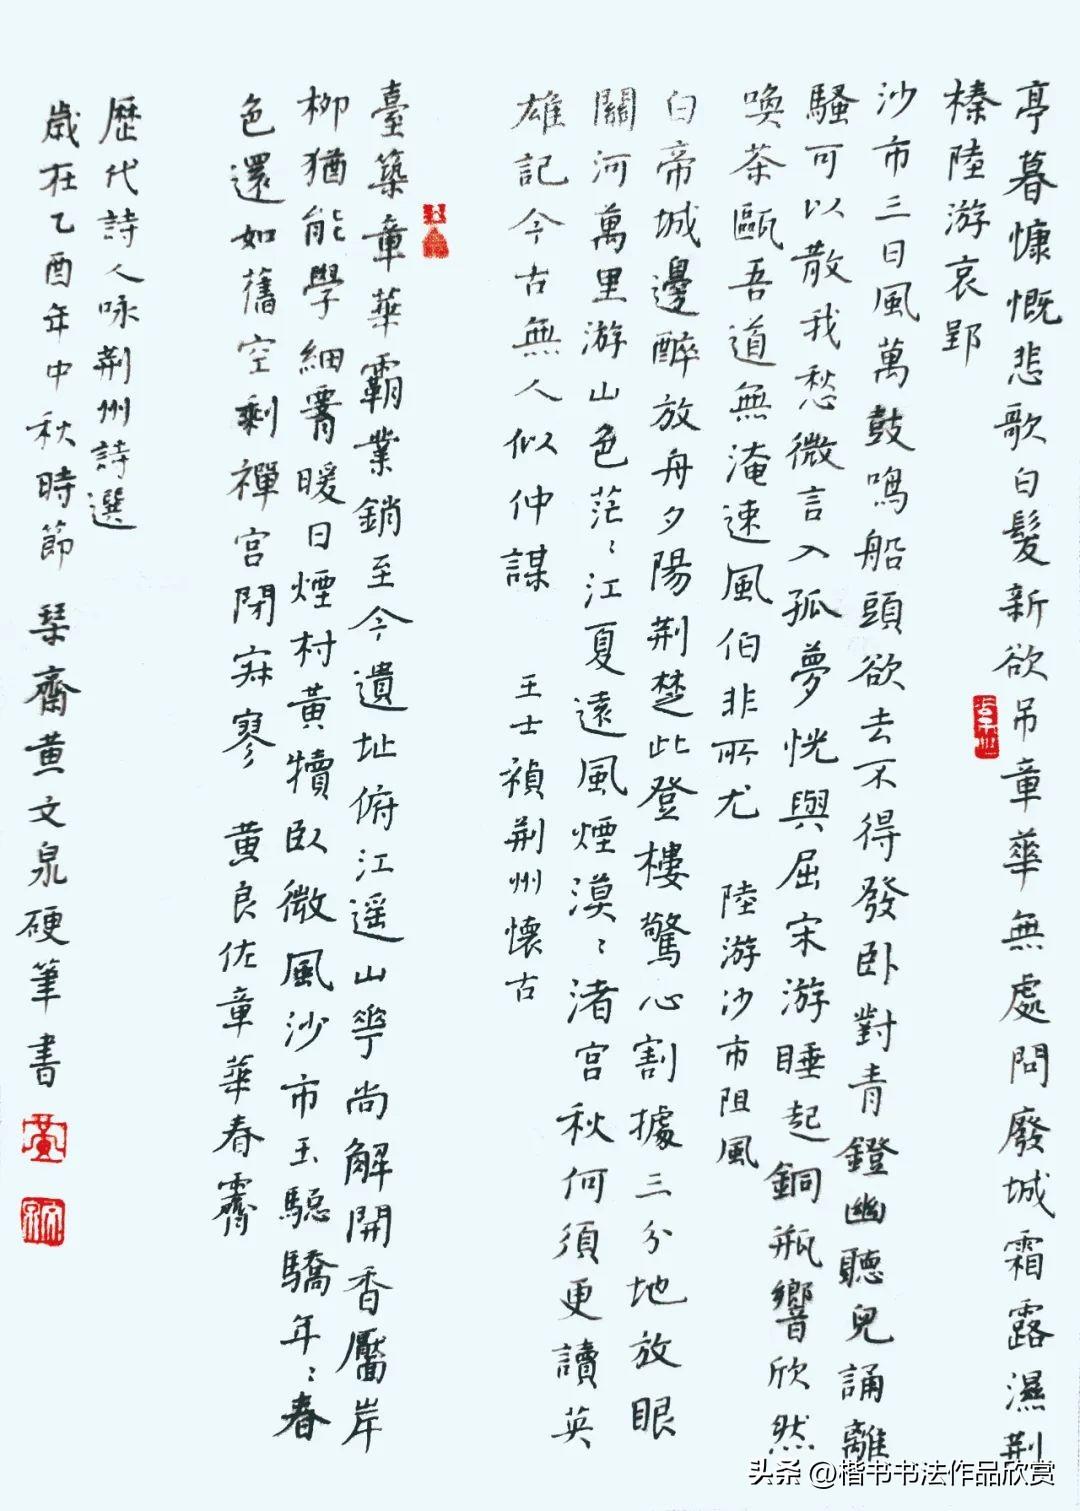 亭暮慷慨悲歌白髮新欲吊章華無處問廢城霜露濕荆
榛陸游哀郢
沙市三日風萬鼓鳴船頭欲去不得發卧對青鐙幽聽兒誦離
騷可以散我愁微言入孤夢恍與屈宋游睡起銅瓶響欣然
喚茶甌吾道無淹速風伯非所尤 陸游沙市阻風
白帝城邊醉放舟夕陽荆楚此登樓驚心割據三分地放眼
關河萬里游山色茫〻江夏遠風煙漠〻渚宮秋何須更讀英
雄記今古無人似仲謀 王士禎荆州懷古
臺築章華霸業銷至今遺址俯江遥山花尚解開香靨岸
柳猶能學細腰暖日煙村黃犢臥微風沙市玉驄驕年〻春
色還如舊空剩禪宮閉寂寥 黃良佐章華春霽
歷代詩人咏荆州詩選
歲在乙酉年中秋時節 琹齋黃文泉硬筆書
头条 @楷书书法作品欣赏